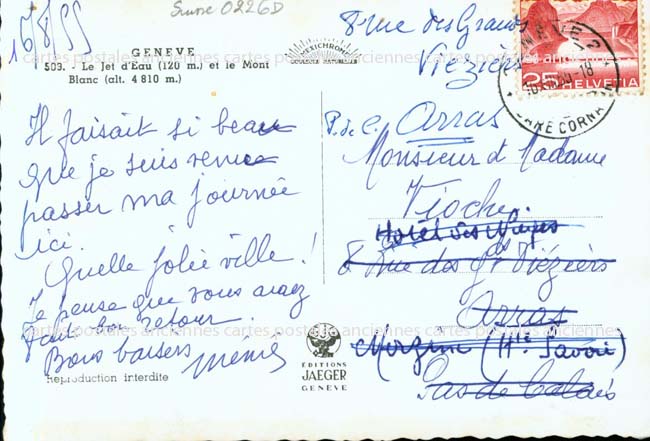 Suisse 0226D
16/8/55
GENEVE
509. - Le Jet d'Eau (120 m.) et le Mont
Blanc (alt. 4 810 m.)
MEXICHROME
COULEURS NATURELLES
Il faisait si beau
que je suis venue
passer ma journée
ici.
Quelle jolie ville !
Je pense que vous avez
fait bon retour.
Bons baisers
Mémé
Reproduction interdite
EDITIONS
JAEGER
GENEVE
8 rue des Grands
Viéziers
P. de C. Arras
Monsieur et Madame
Vioche.
Hotel des Alpes
8 Rue des Gds Viéziers
Arras
Morzine (Hte Savoie)
Pas de Calais
25 HELVETIA
GENÈVE 2
GARE CORNAVIN
cartes postales anciennes cartes postales anciennes cartes postales anciennes
cartes postales anciennes cartes postales anciennes cartes postales anciennes